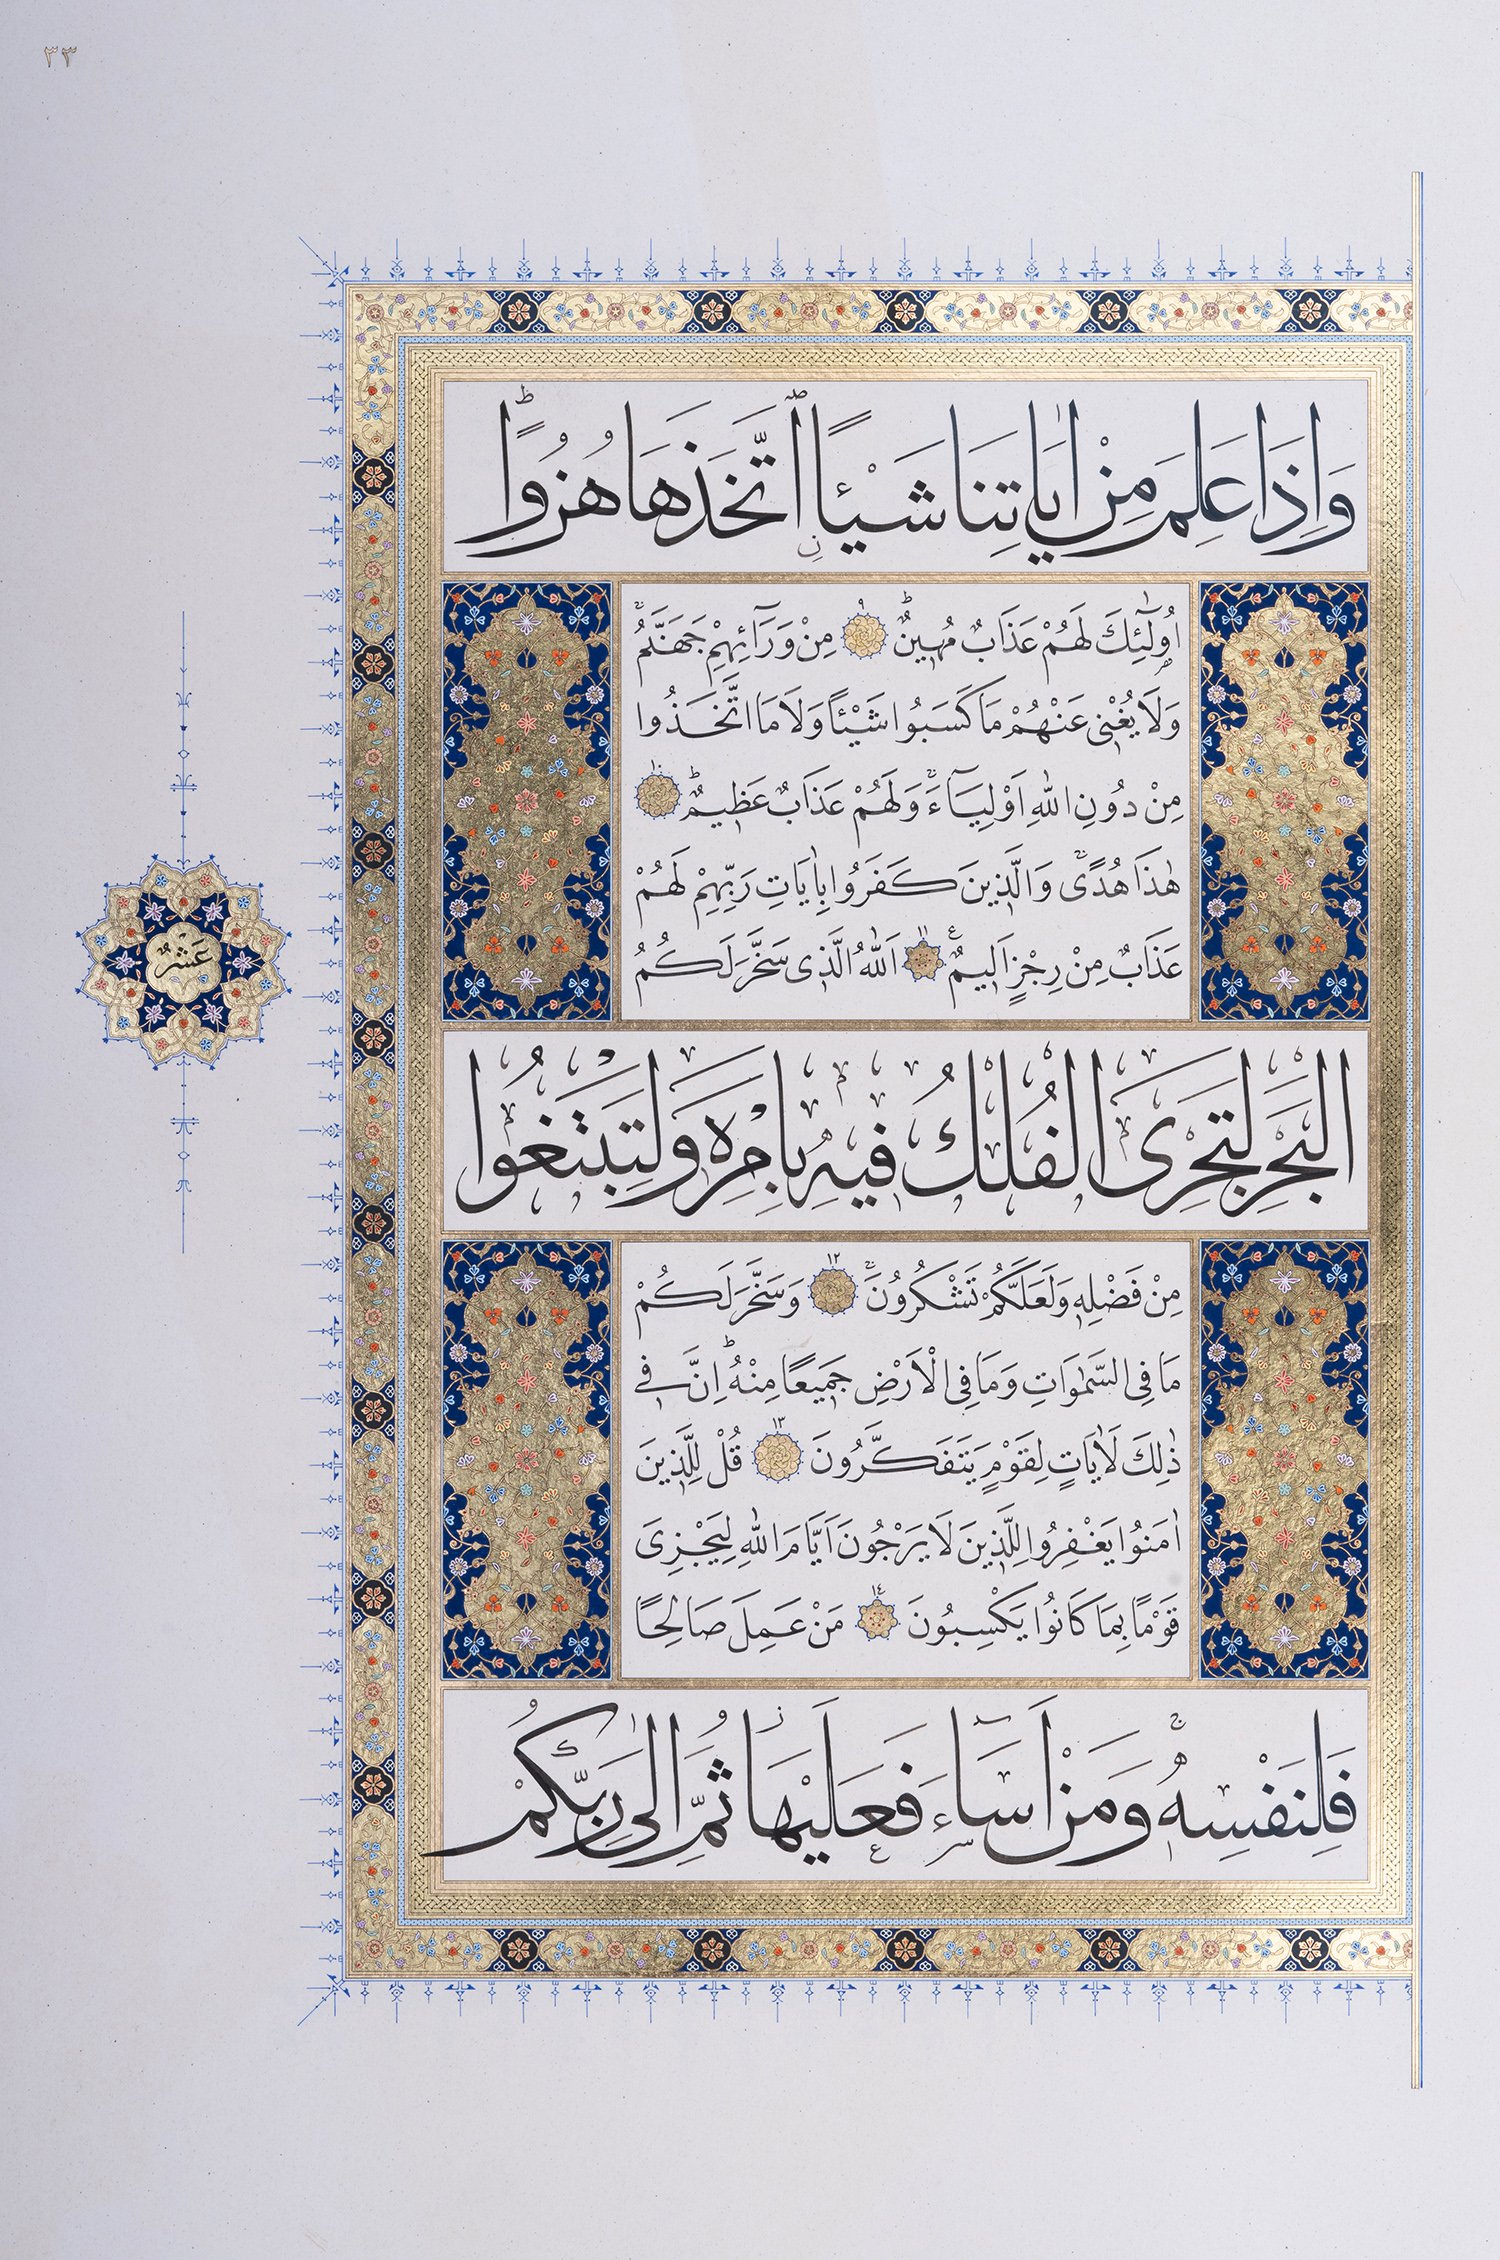 ٣٣
وَاِذَا عَلِمَ مِنْ اٰيَاتِنَا شَيْـًٔا ۨاتَّخَذَهَا هُزُوًاۜ
اُو۬لٰٓئِكَ لَهُمْ عَذَابٌ مُه۪ينٌۜ ٩ مِنْ وَرَٓائِهِمْ جَهَنَّمُۚ
وَلَا يُغْن۪ي عَنْهُمْ مَا كَسَبُوا شَيْـًٔا وَلَا مَا اتَّخَذُوا
مِنْ دُونِ اللّٰهِ اَوْلِيَٓاءَۚ وَلَهُمْ عَذَابٌ عَظ۪يمٌۜ ١٠
هٰذَا هُدًىۚ وَالَّذ۪ينَ كَفَرُوا بِاٰيَاتِ رَبِّهِمْ لَهُمْ
عَذَابٌ مِنْ رِجْزٍ اَل۪يمٌ ع ١١ اَللّٰهُ الَّذ۪ي سَخَّرَ لَكُمُ
عَشْرٌ
الْبَحْرَ لِتَجْرِيَ الْفُلْكُ ف۪يهِ بِاَمْرِه۪ وَلِتَبْتَغُوا
مِنْ فَضْلِه۪ وَلَعَلَّكُمْ تَشْكُرُونَۚ ١٢ وَسَخَّرَ لَكُمْ
مَا فِي السَّمٰوَاتِ وَمَا فِي الْاَرْضِ جَم۪يعًا مِنْهُۜ اِنَّ ف۪ي
ذٰلِكَ لَاٰيَاتٍ لِقَوْمٍ يَتَفَكَّرُونَ ١٣ قُلْ لِلَّذ۪ينَ
اٰمَنُوا يَغْفِرُوا لِلَّذ۪ينَ لَا يَرْجُونَ اَيَّامَ اللّٰهِ لِيَجْزِيَ
قَوْمًا بِمَا كَانُوا يَكْسِبُونَ ١٤ مَنْ عَمِلَ صَالِحًا
فَلِنَفْسِه۪ۚ وَمَنْ اَسَٓاءَ فَعَلَيْهَاۘ ثُمَّ اِلٰى رَبِّكُمْ